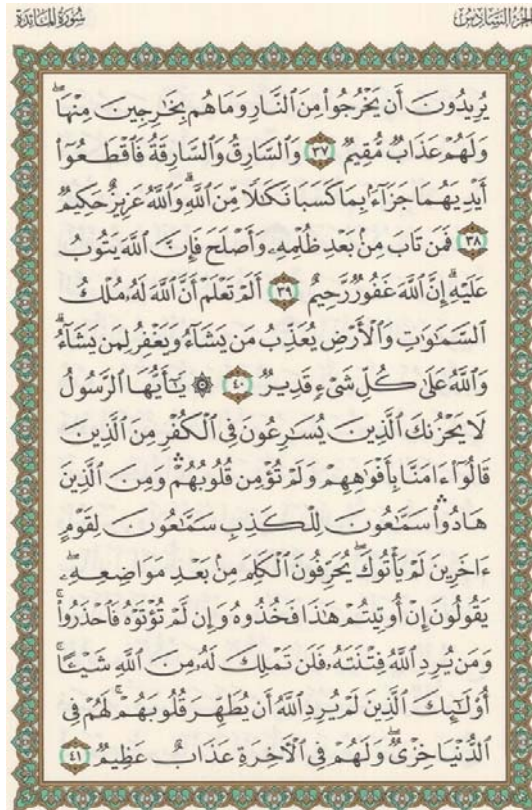 الجزء السادس
سورة المائدة
يُرِيدُونَ أَن يَخْرُجُوا۟ مِنَ ٱلنَّارِ وَمَا هُم بِخَـٰرِجِينَ مِنْهَا ۖ
وَلَهُمْ عَذَابٌ مُّقِيمٌ ٣٧ وَٱلسَّارِقُ وَٱلسَّارِقَةُ فَٱقْطَعُوٓا۟
أَيْدِيَهُمَا جَزَآءًۢ بِمَا كَسَبَا نَكَـٰلًا مِّنَ ٱللَّهِ ۗ وَٱللَّهُ عَزِيزٌ حَكِيمٌ
٣٨ فَمَن تَابَ مِنۢ بَعْدِ ظُلْمِهِۦ وَأَصْلَحَ فَإِنَّ ٱللَّهَ يَتُوبُ
عَلَيْهِ ۗ إِنَّ ٱللَّهَ غَفُورٌ رَّحِيمٌ ٣٩ أَلَمْ تَعْلَمْ أَنَّ ٱللَّهَ لَهُۥ مُلْكُ
ٱلسَّمَـٰوَٰتِ وَٱلْأَرْضِ يُعَذِّبُ مَن يَشَآءُ وَيَغْفِرُ لِمَن يَشَآءُ ۗ
وَٱللَّهُ عَلَىٰ كُلِّ شَىْءٍ قَدِيرٌ ٤٠ ۞ يَـٰٓأَيُّهَا ٱلرَّسُولُ
لَا يَحْزُنكَ ٱلَّذِينَ يُسَـٰرِعُونَ فِى ٱلْكُفْرِ مِنَ ٱلَّذِينَ
قَالُوٓا۟ ءَامَنَّا بِأَفْوَٰهِهِمْ وَلَمْ تُؤْمِن قُلُوبُهُمْ ۛ وَمِنَ ٱلَّذِينَ
هَادُوا۟ ۛ سَمَّـٰعُونَ لِلْكَذِبِ سَمَّـٰعُونَ لِقَوْمٍ
ءَاخَرِينَ لَمْ يَأْتُوكَ ۖ يُحَرِّفُونَ ٱلْكَلِمَ مِنۢ بَعْدِ مَوَاضِعِهِۦ ۖ
يَقُولُونَ إِنْ أُوتِيتُمْ هَـٰذَا فَخُذُوهُ وَإِن لَّمْ تُؤْتَوْهُ فَٱحْذَرُوا۟ ۚ
وَمَن يُرِدِ ٱللَّهُ فِتْنَتَهُۥ فَلَن تَمْلِكَ لَهُۥ مِنَ ٱللَّهِ شَيْـًٔا ۚ
أُو۟لَـٰٓئِكَ ٱلَّذِينَ لَمْ يُرِدِ ٱللَّهُ أَن يُطَهِّرَ قُلُوبَهُمْ ۚ لَهُمْ فِى
ٱلدُّنْيَا خِزْىٌ ۖ وَلَهُمْ فِى ٱلْـَٔاخِرَةِ عَذَابٌ عَظِيمٌ ٤١